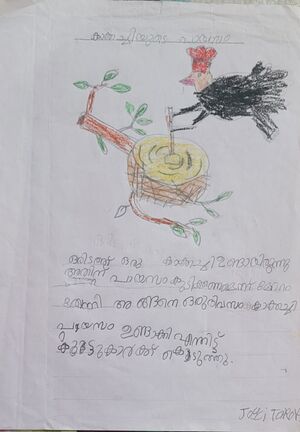 കാക്കച്ചിയുടെ പായസം
ഒരിടത്ത് ഒരു കാക്കച്ചി ഉണ്ടായിരുന്നു
അവൾക്ക് പായസം കുടിക്കണമെന്ന് മോഹം
തോന്നി അങ്ങനെ ഒരു ദിവസം കാക്കച്ചി
പായസം ഉണ്ടാക്കി എന്നിട്ട്
കൂട്ടുകാർക്ക് കൊടുത്തു.